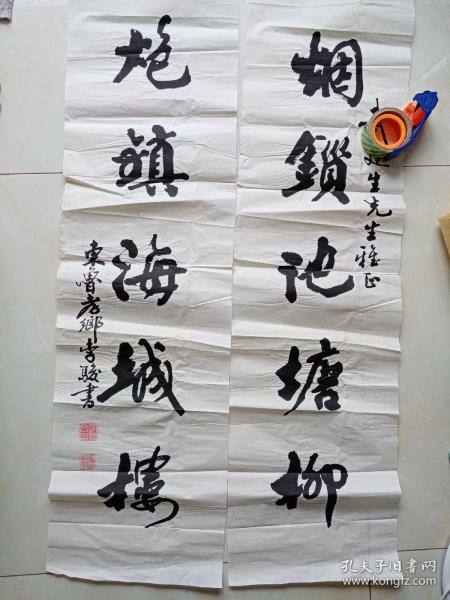 烟鎖池塘柳
生先生雅正
炮鎮海城樓
東魯唐鄉李駿書
孔夫子旧书网
www.kongfz.com